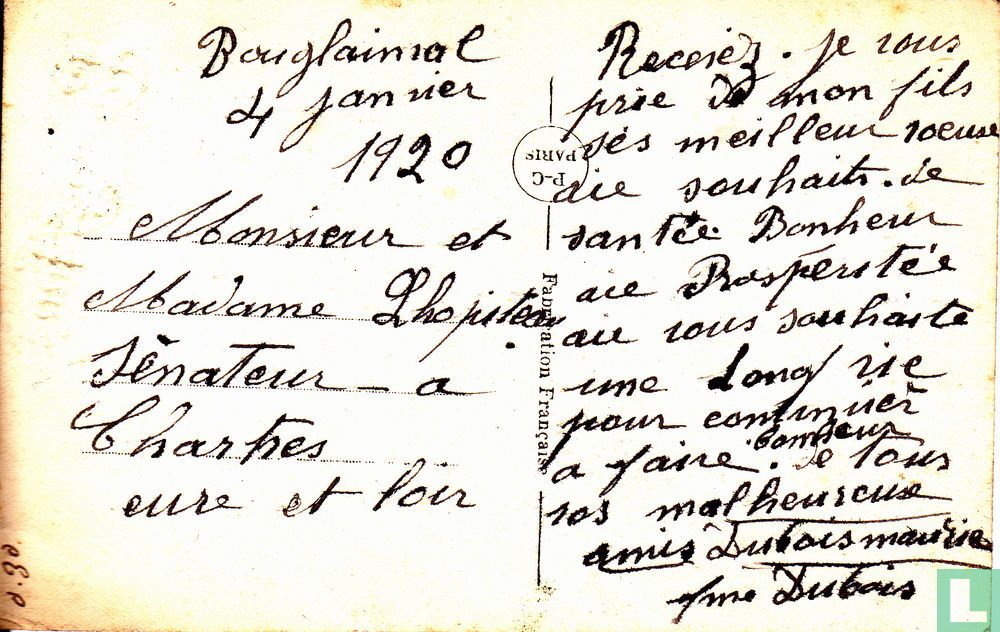 Bouglainval
4 janvier
1920
Monsieur et
Madame Lhopiteau
Sénateur - a
Chartres
eure et loir
Recevez. je vous
prie de mon fils
ses meilleur voeuse
aie souhaits. de
santée Bonheur
aie Prosperitée
aie vous souhaite
une Long vie
pour continuer
a faire. bonheur de tous
vos malheureuse
amis Dubois maurice
fme Dubois
P-C
PARIS
Fabrication Française
L